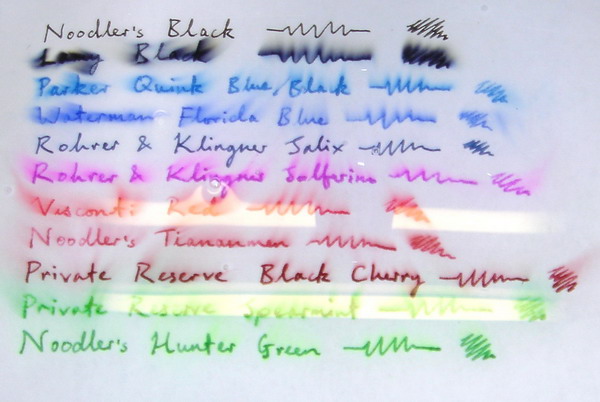 Noodler's Black
Lamy Black
Parker Quink Blue/Black
Waterman Florida Blue
Rohrer & Klingner Salix
Rohrer & Klingner Solferino
Visconti Red
Noodler's Tiananmen
Private Reserve Black Cherry
Private Reserve Spearmint
Noodler's Hunter Green